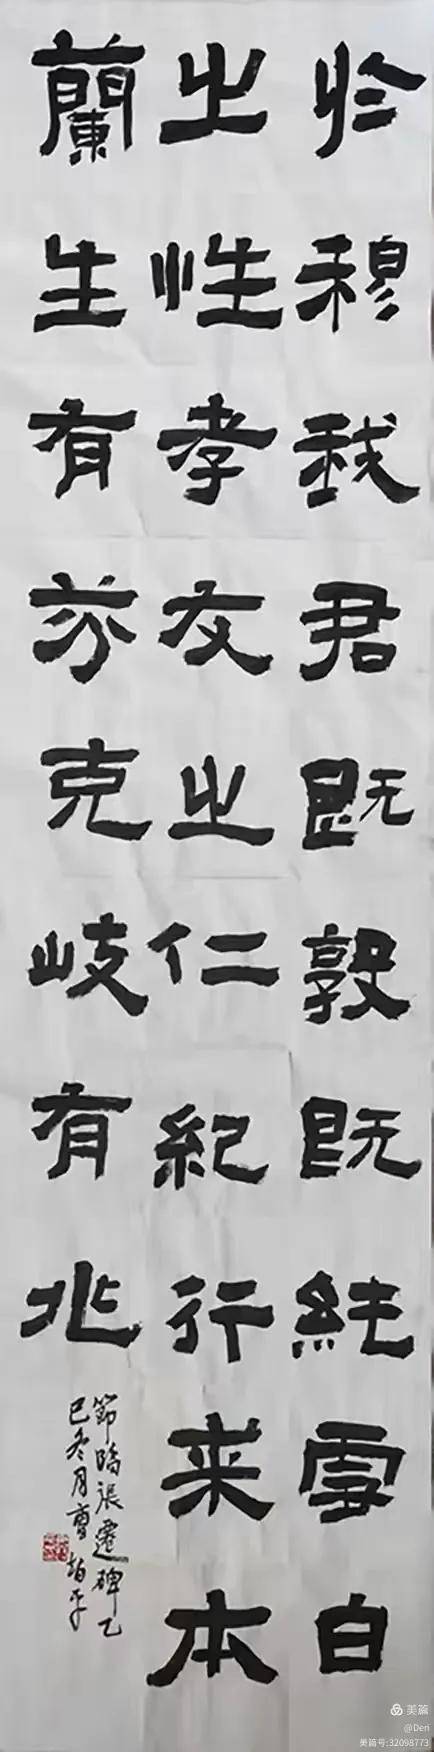 於穆我君既敦既純雪白
之性孝友之仁紀行来本
蘭生有芬克岐有兆
節臨張遷碑乙
巳冬月曹柏平
美篇
@Deri
美篇号:32098773